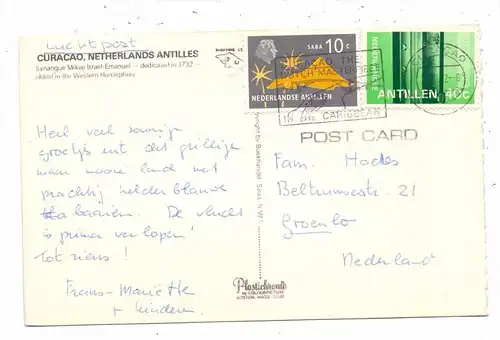 Luchtpost
CURACAO, NETHERLANDS ANTILLES
Synangue Mikve Israel-Emanuel — dedicated in 1732 —
oldest in the Western Hemisphere
SABA 10 c
NEDERLANDSE ANTILLEN
ANTILLEN 40c
CURACAO THE
DUTCH MASTERPIECE
IN THE CARIBBEAN
POST CARD
Heel veel zonnige
groetjes uit dit grillige
maar mooie land met
prachtig helder blauwe
baaien. De vlucht
is prima verlopen!
Tot ziens!
Frans-Mariëtte
+ kinderen
by Boekhandel Salas N.W.
Plastichrome
by COLOURPICTURE
BOSTON, MASS. 02130
Fam.
Beltrumsestr. 21
Groenlo
Nederland